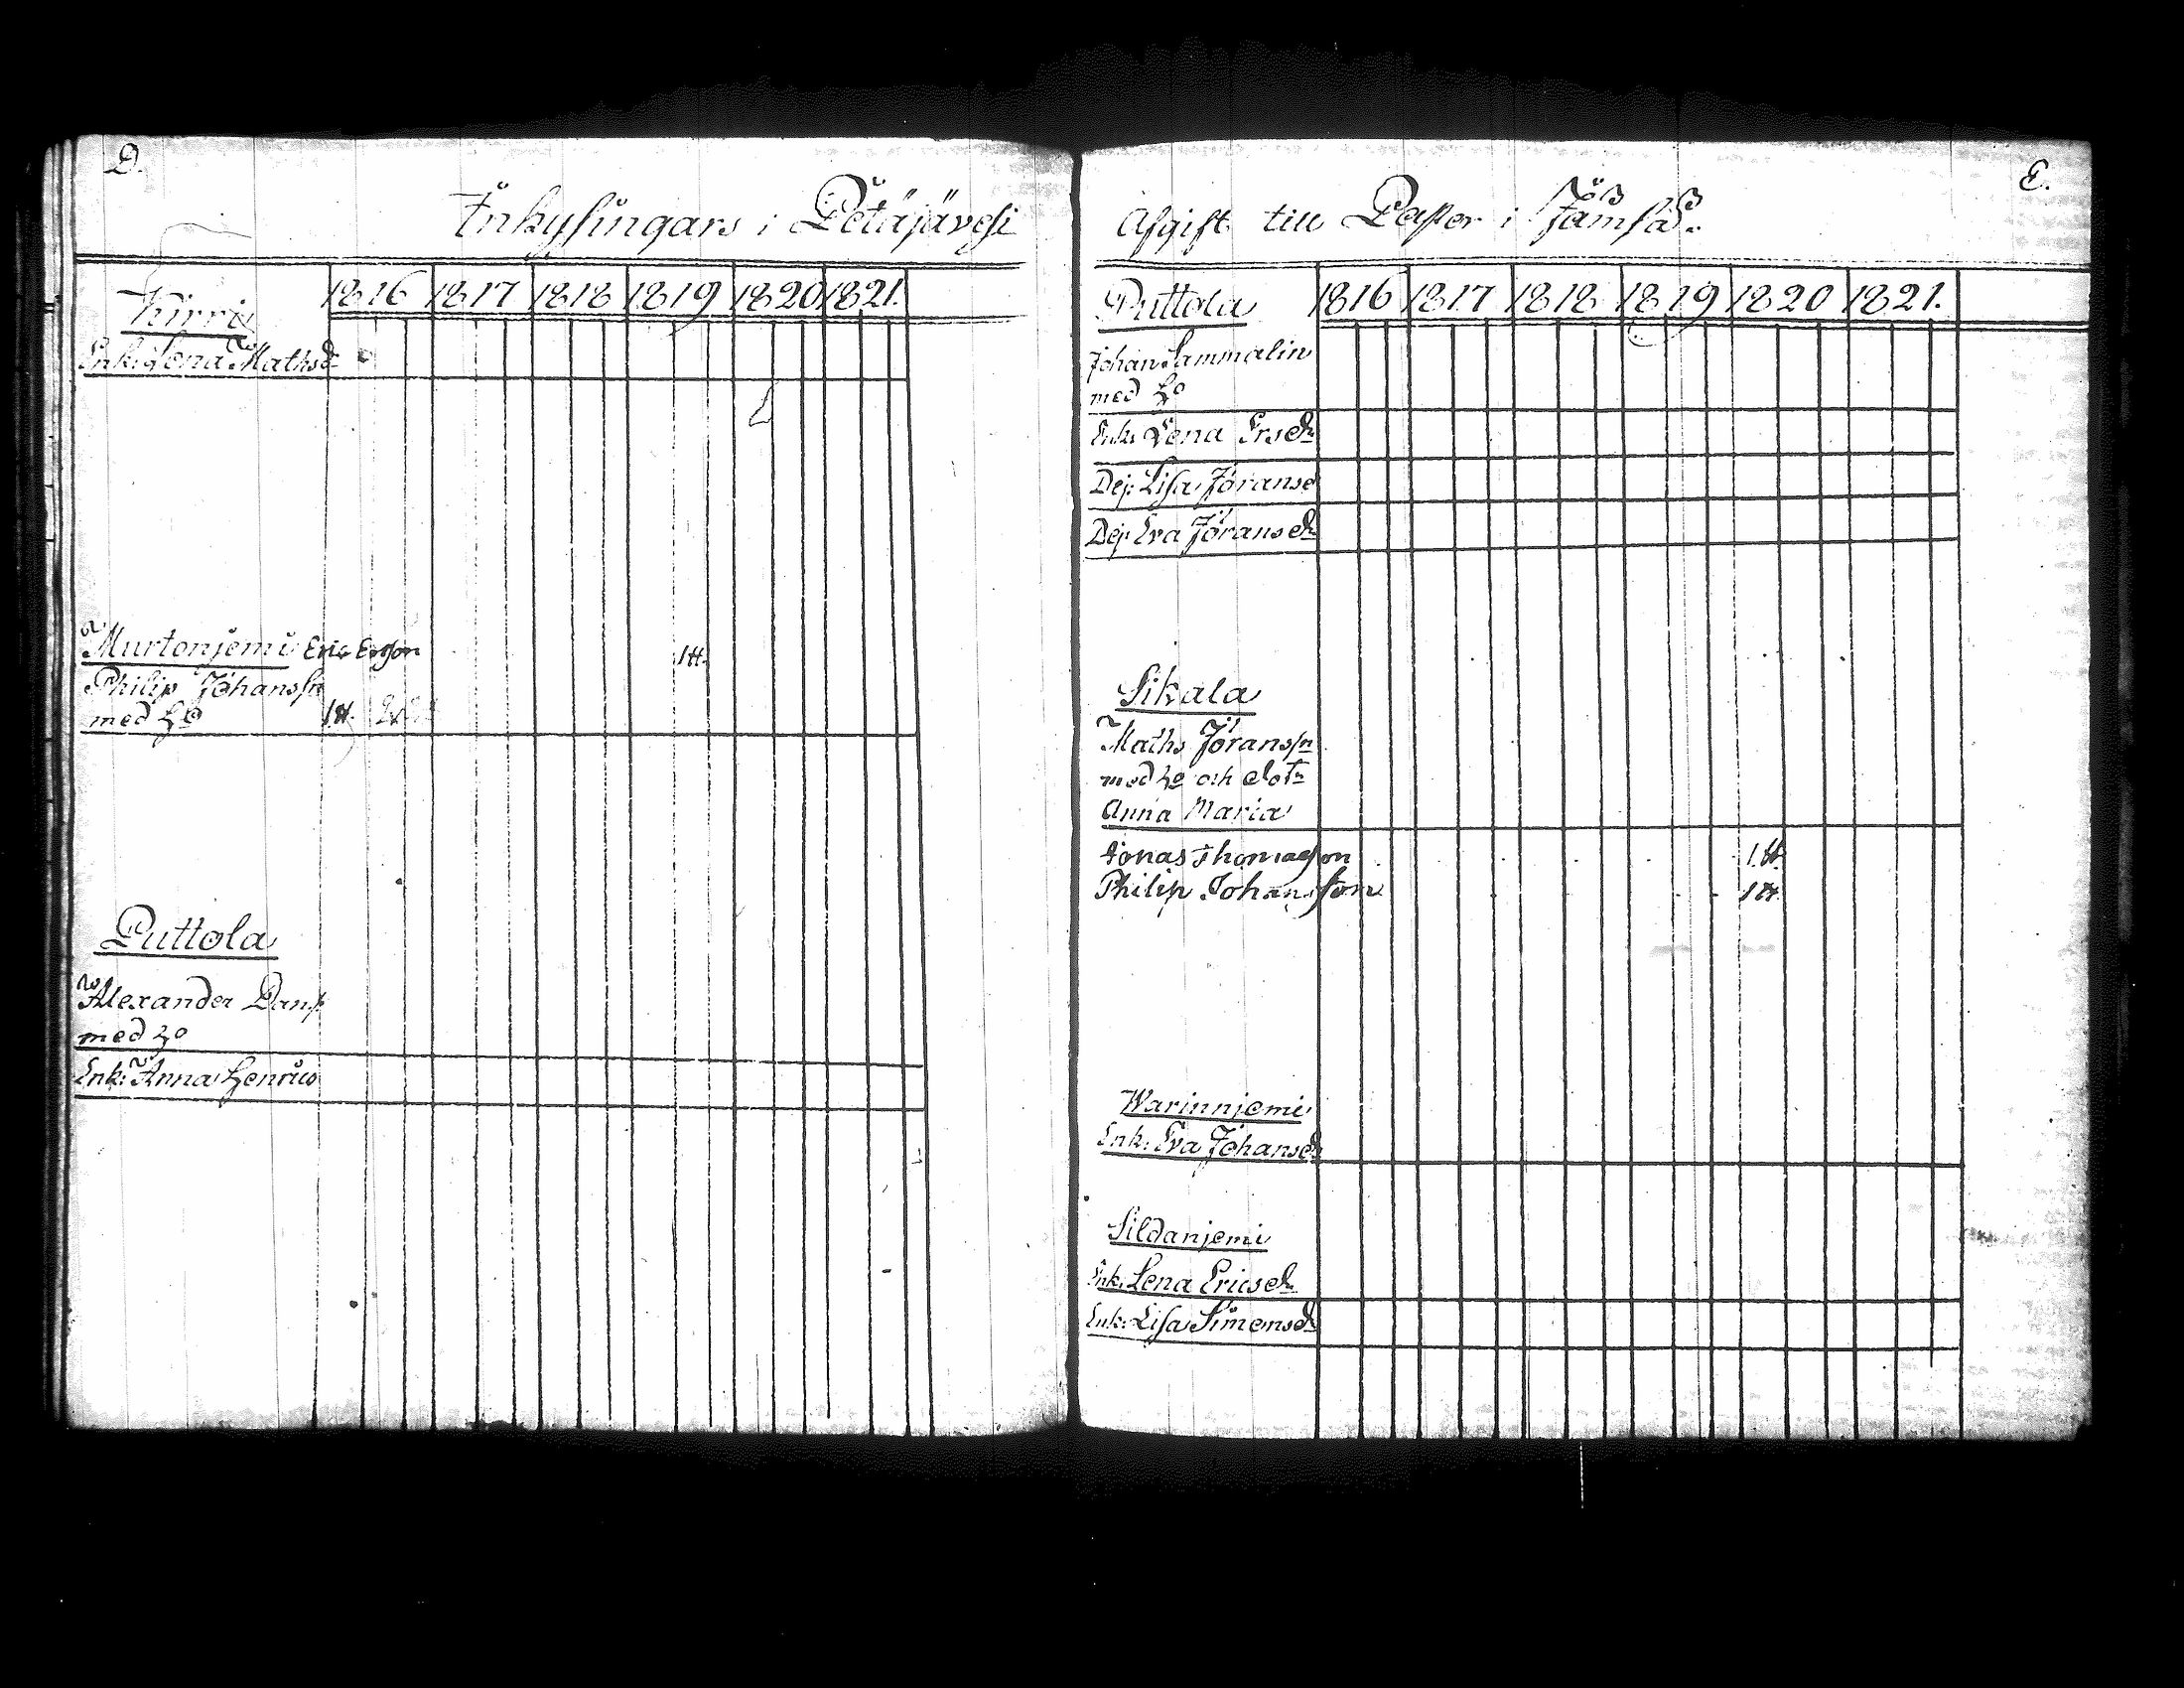 D.
Inhysingars i Petäjävesi
Kirri 1816 1817 1818 1819 1820 1821.
Enk: Lena Mathsd:
Murtonjemi Eric Ersson 1 tt.
Philip Johanss:n
med Ho 1 tt.
Puttola
Alexander Dans:
med Ho
Enk: Anna Henrics
E.
Afgift till Pastor i Jämsä.
Puttola 1816 1817 1818 1819 1820 1821.
Johan Lammalin
med Ho
Enk: Lena Ersd:
Dej: Lisa Jöransd
Dej: Eva Jöransd:
Sikala
Maths Jöranss:n
med Ho och dotr
Anna Maria
Jonas Thomasson 1 tt.
Philip Johansson 1 tt.
Warinnjemi
Enk: Eva Johansd:
Sildanjemi
Enk: Lena Ericsd:
Enk: Lisa Simonsd: